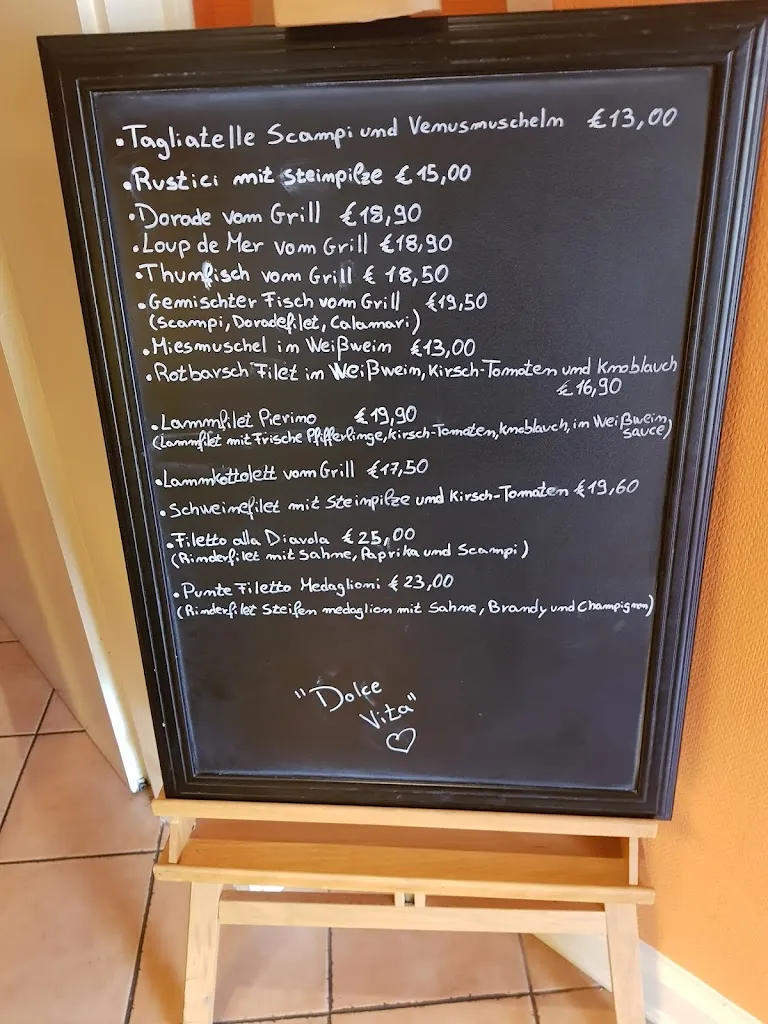 •Tagliatelle Scampi und Vemusmuschelm €13,00
•Rustici mit steimpilze €15,00
•Dorade vom Grill €18,90
•Loup de Mer vom Grill €18,90
•Thumfisch vom Grill € 18,50
•Gemischter Fisch vom Grill €19,50
(Scampi, Doradefilet, Calamari)
•Miesmuschel im Weißweim €13,00
•Rotbarsch Filet im Weißweim, Kirsch-Tomaten und Kmoblauch
€16,90
•Lammfilet Pierimo €19,90
(Lammfilet mit Frische Pfifferlimge, Kirsch-Tomaten, Kmoblauch, im Weißweim
sauce)
•Lammkottolett vom Grill €17,50
•Schweimefilet mit Steimpilze und Kirsch-Tomaten €19,60
•Filetto alla Diavola €25,00
(Rimderfilet mit Sahme, Paprika und Scampi)
•Pumte Filetto Medaglioni €23,00
(Rimderfilet Steifen medaglion mit Sahme, Brandy und Champignon)
"Dolce
Vita"